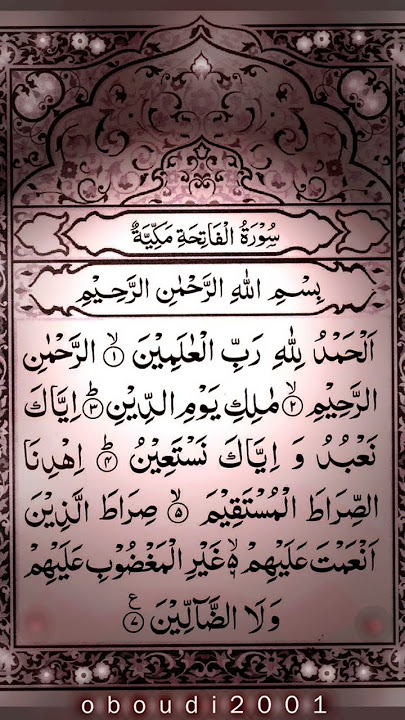 سُوْرَةُ الْفَاتِحَةِ مَكِّيَّةٌ
بِسْمِ اللّٰهِ الرَّحْمٰنِ الرَّحِيْمِ
اَلْحَمْدُ لِلّٰهِ رَبِّ الْعٰلَمِيْنَ ۙ﴿۱﴾ الرَّحْمٰنِ
الرَّحِيْمِ ۙ﴿۲﴾ مٰلِكِ يَوْمِ الدِّيْنِ ؕ﴿۳﴾ اِيَّاكَ
نَعْبُدُ وَ اِيَّاكَ نَسْتَعِيْنُ ؕ﴿۴﴾ اِهْدِنَا
الصِّرَاطَ الْمُسْتَقِيْمَ ۙ﴿۵﴾ صِرَاطَ الَّذِيْنَ
اَنْعَمْتَ عَلَيْهِمْ ۙ۬﴿۶﴾ غَيْرِ الْمَغْضُوْبِ عَلَيْهِمْ
وَلَا الضَّآلِّيْنَ ﴿۷﴾ ع
oboudi2001